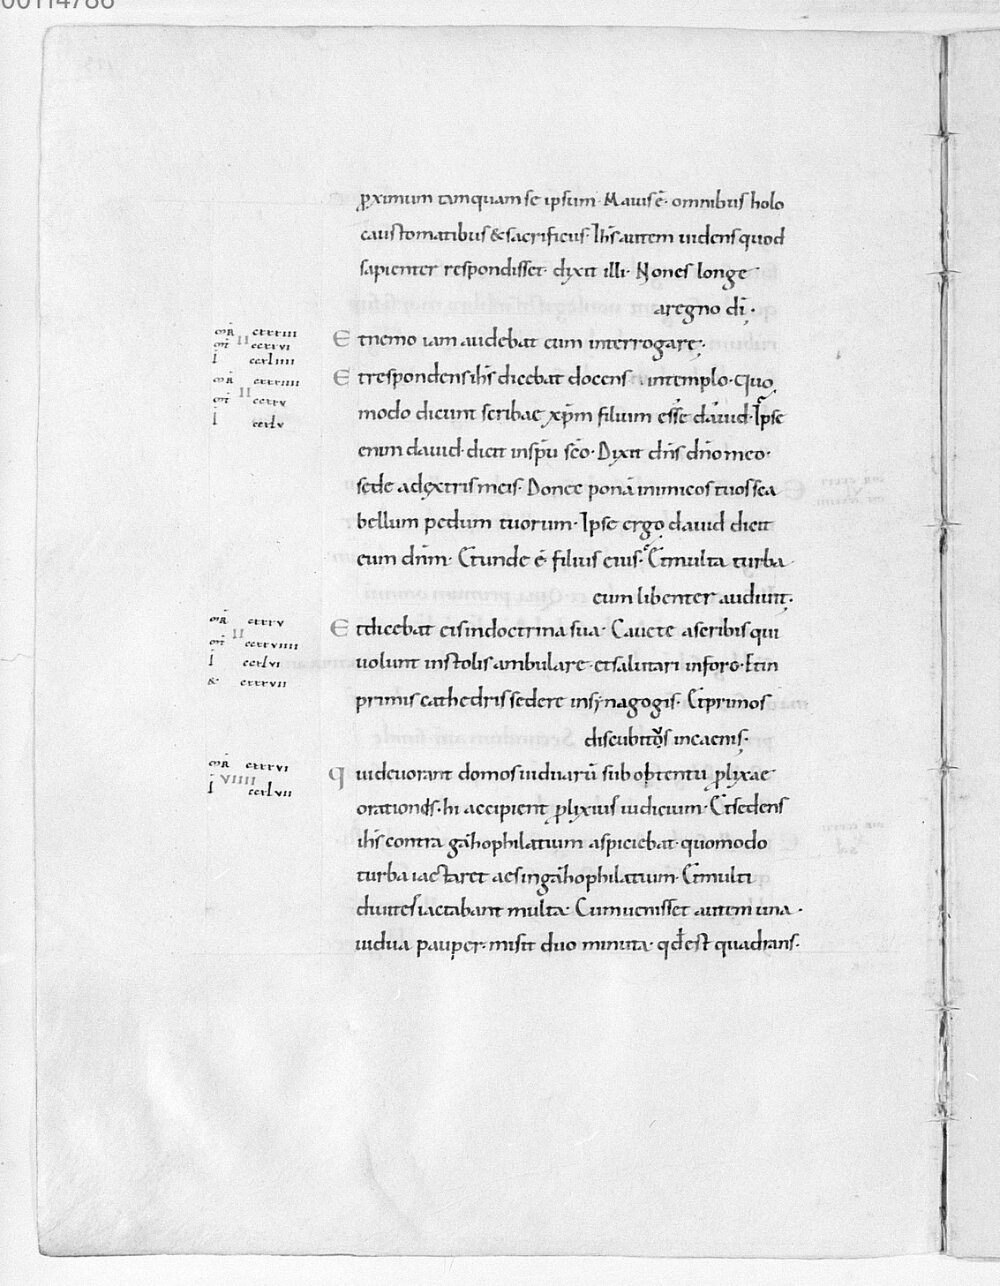 00114786
p̲ximum tamquam se ipsum· Maius ē· omnibus holo
caustomatibus & sacrificiis· Ih̅s autem uidens quod
sapienter respondisset· dixit illi· Non es longe
a regno dī·
Et nemo iam audebat eum interrogare·
Et respondens ih̅s dicebat docens· in templo· Quo
modo dicunt scribae xp̅m filium esse dauid· Ipse
enim dauid· dicit in sp̅u sc̅o· Dixit dn̅s dn̅o meo·
sede a dextris meis· Donec ponā inimicos tuos sca
bellum pedum tuorum· Ipse ergo dauid dicit
eum dn̅m· Et unde ē filius eius· Et multa turba
eum libenter audiuit·
Et dicebat eis in doctrina sua· Cauete a scribis qui
uolunt in stolis ambulare· et salutari in foro· Et in
primis cathedris sedere in synagogis· Et primos
discubitos in caenis·
qui deuorant domos uiduarū sub obtentu p̲lixae
orationis· hi accipient p̲lixius iudicium· Et sedens
ih̅s contra gazophilatium aspiciebat· quomodo
turba iactaret aes in gazophilatium· Et multi
diuites iactabant multa· Cum uenisset autem una·
uidua pauper· misit duo minuta· qd̅ est quadrans·